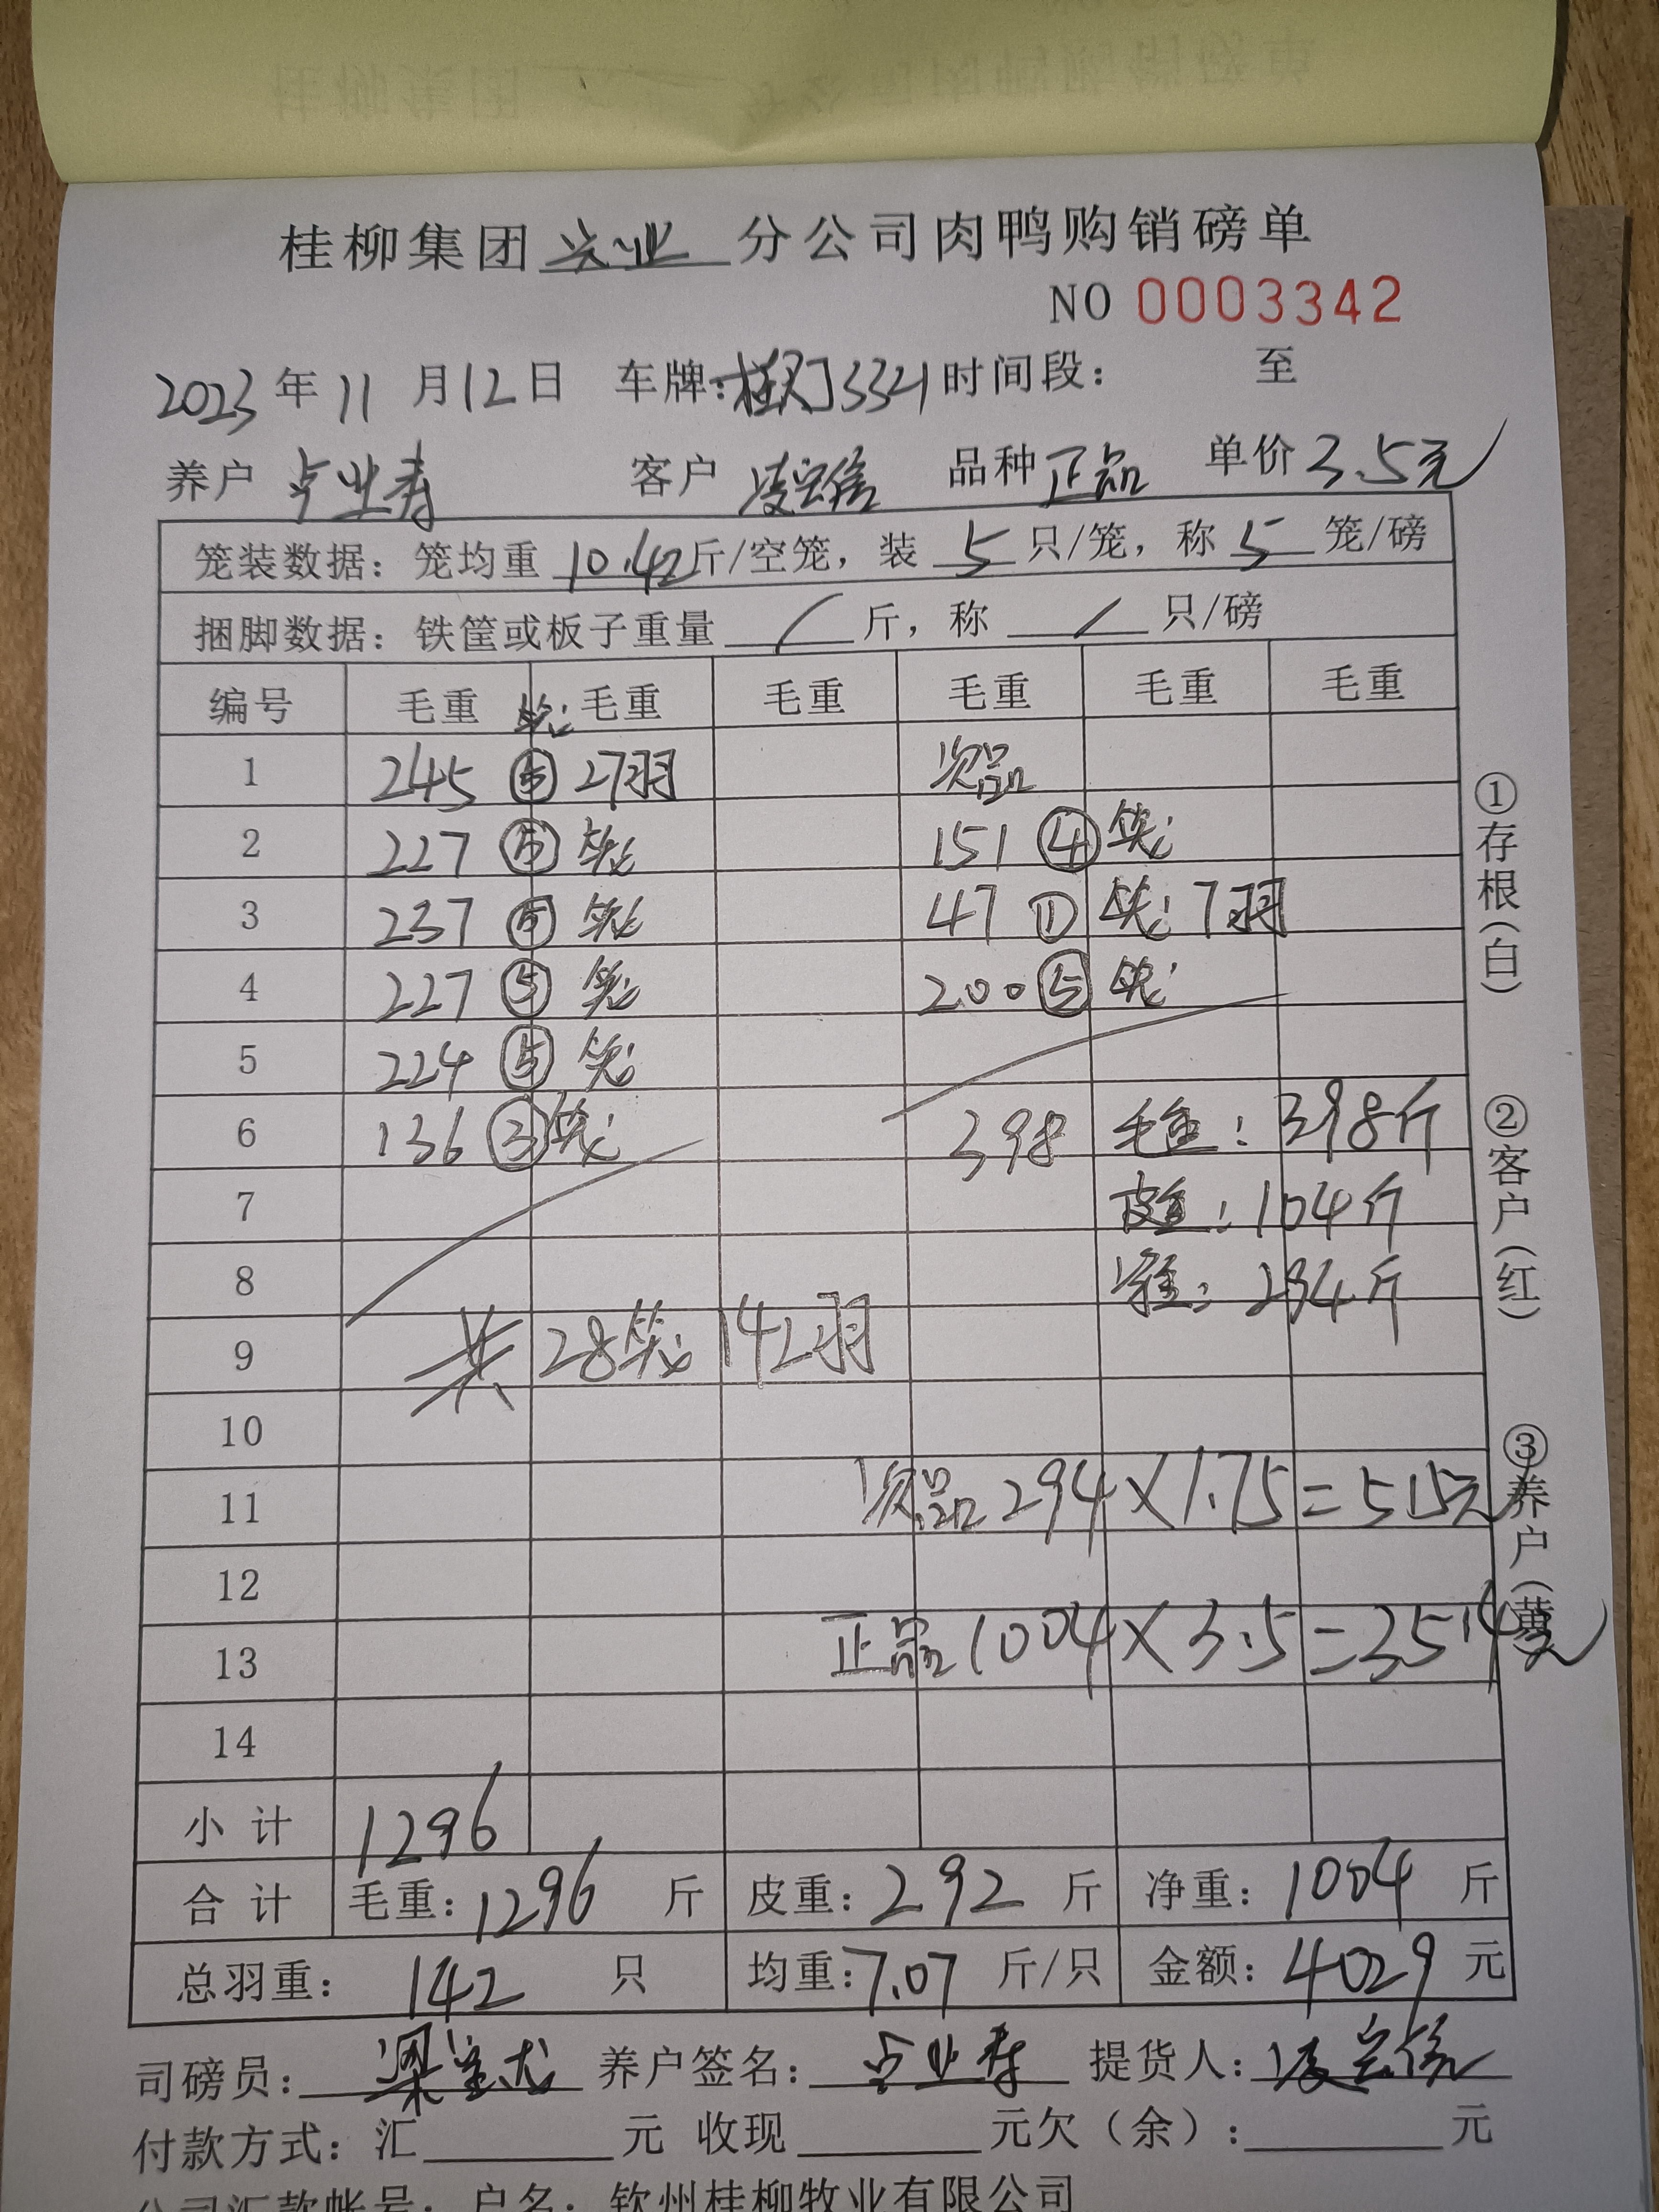 桂柳集团兴业分公司肉鸭购销磅单
NO 0003342
2023年11月12日 车牌: 3321 时间段: 至
养户 卢业寿 客户 凌宗信 品种 正品 单价 3.5元
笼装数据: 笼均重 10.42 斤/空笼, 装 5 只/笼, 称 5 笼/磅
捆脚数据: 铁筐或板子重量 / 斤, 称 / 只/磅
编号 毛重 笼 毛重 毛重 毛重 毛重 毛重
1 245 ⑤ 27羽 次品
2 227 ⑤ 笼 151 ④ 笼
3 237 ⑤ 笼 47 ① 笼 7羽
4 227 ⑤ 笼 200 ⑤ 笼
5 224 ⑤ 笼
6 136 ③ 笼 398 毛重: 398斤
7 皮重: 104斤
8 净重: 294斤
9 共28笼 142羽
10
11 次品 294×1.75=515元
12
13 正品 1004×3.5=3514元
14
小计 1296
合计 毛重: 1296 斤 皮重: 292 斤 净重: 1004 斤
总羽重: 142 只 均重: 7.07 斤/只 金额: 4029 元
司磅员: 梁 养户签名: 卢业寿 提货人: 凌宗信
付款方式: 汇 元 收现 元欠(余): 元
公司汇款帐号: 户名: 钦州桂柳牧业有限公司
①存根(白)
②客户(红)
③养户(黄)